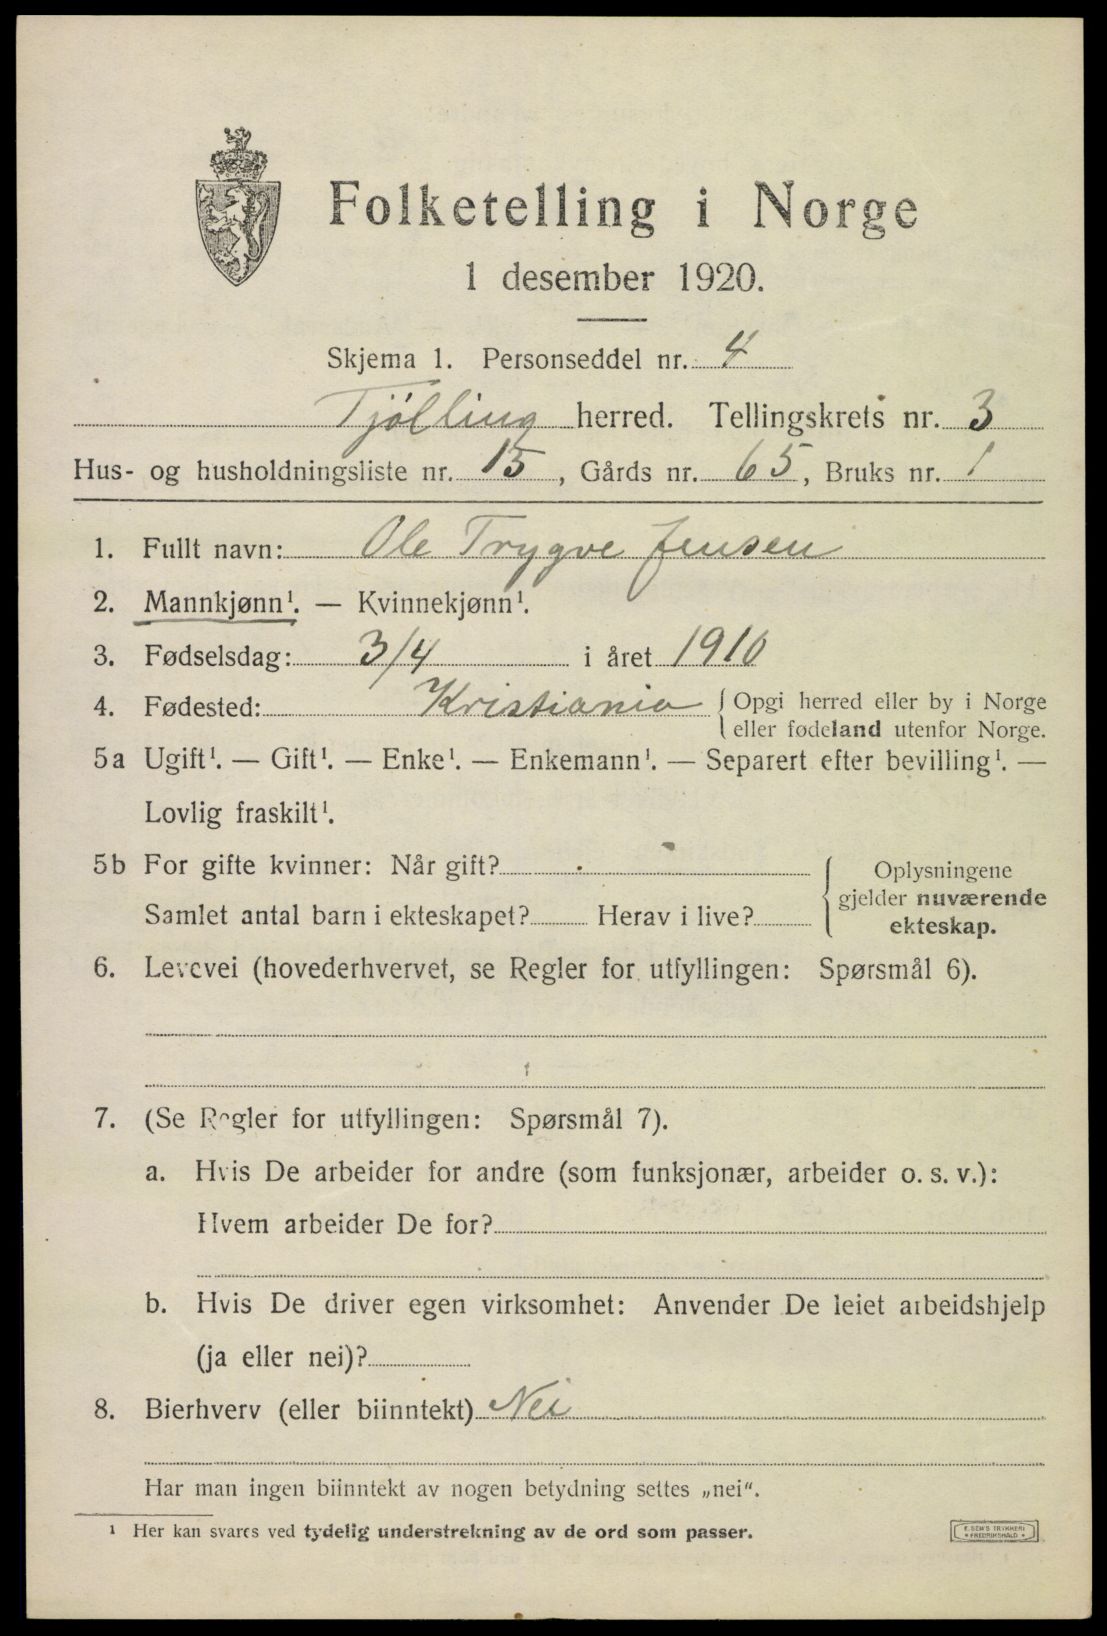 Folketelling i Norge
1 desember 1920.
Skjema 1. Personseddel nr. 4
Tjølling herred. Tellingskrets nr. 3
Hus- og husholdningsliste nr. 15, Gårds nr. 65, Bruks nr. 1
1. Fullt navn: Ole Trygve Jensen
2. Mannkjønn¹. — Kvinnekjønn¹.
3. Fødselsdag: 3/4 i året 1910
4. Fødested: Kristiania { Opgi herred eller by i Norge
eller fødeland utenfor Norge.
5a Ugift¹. — Gift¹. — Enke¹. — Enkemann¹. — Separert efter bevilling¹. —
Lovlig fraskilt¹.
5b For gifte kvinner: Når gift?
Samlet antal barn i ekteskapet? Herav i live?
{ Oplysningene
gjelder nuværende
ekteskap.
6. Levevei (hovederhvervet, se Regler for utfyllingen: Spørsmål 6).
7. (Se Regler for utfyllingen: Spørsmål 7).
a. Hvis De arbeider for andre (som funksjonær, arbeider o. s. v.):
Hvem arbeider De for?
b. Hvis De driver egen virksomhet: Anvender De leiet arbeidshjelp
(ja eller nei)?
8. Bierhverv (eller biinntekt) Nei
Har man ingen biinntekt av nogen betydning settes „nei“.
¹ Her kan svares ved tydelig understrekning av de ord som passer.
E. SEM'S TRYKKERI
* FREDRIKSHALD *